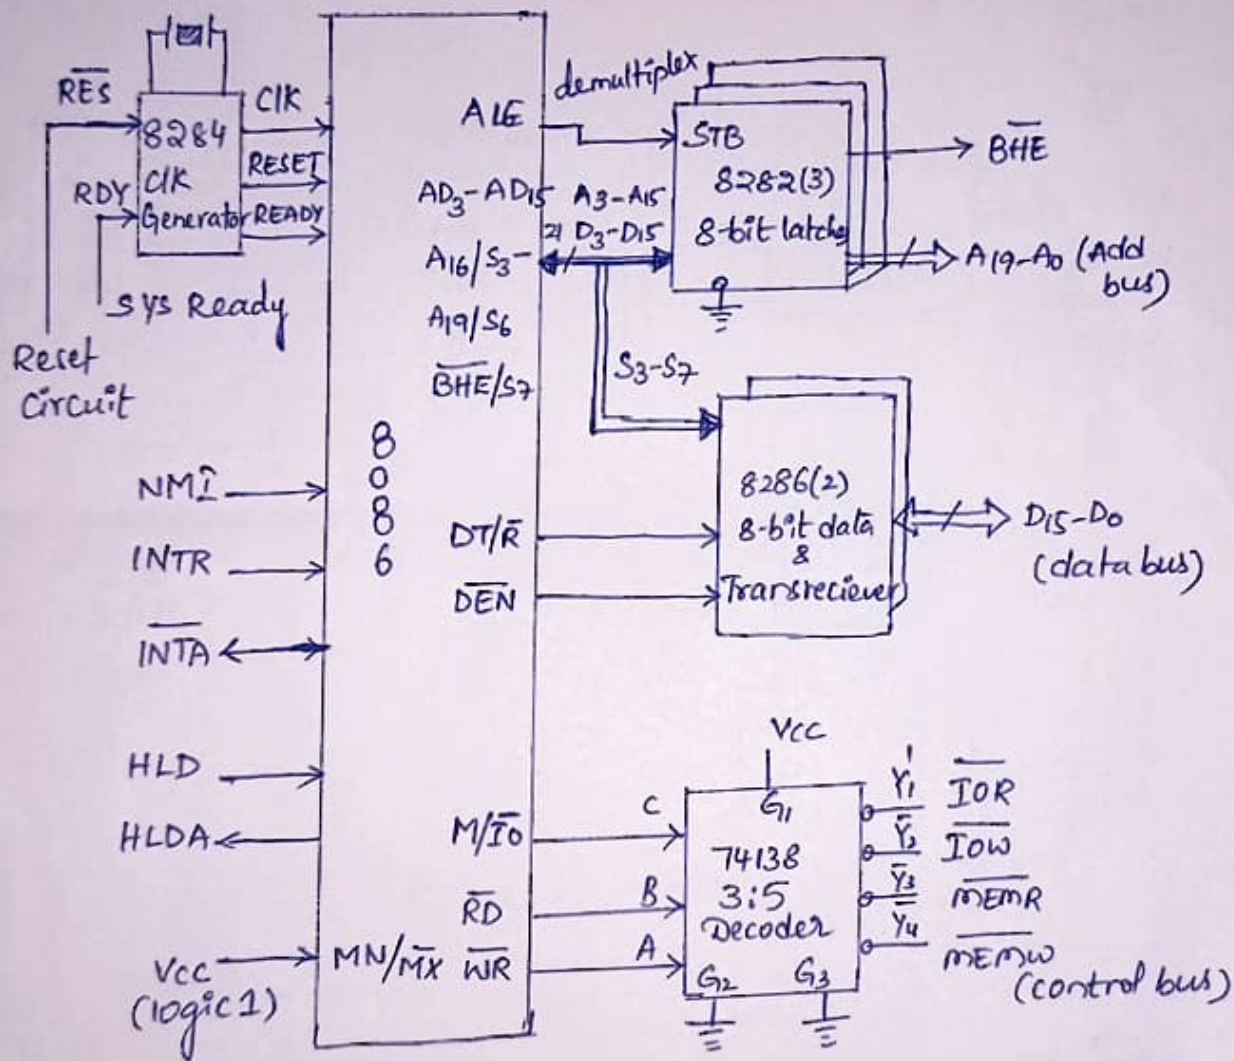 R̅E̅S̅
8284
Clk
Generator
RDY
Clk
RESET
READY
Sys Ready
Reset
Circuit
NMI
INTR
I̅N̅T̅A̅
HLD
HLDA
Vcc
(logic1)
8
0
8
6
ALE
AD3-AD15
A16/S3-
A19/S6
B̅H̅E̅/S7
DT/R̅
D̅E̅N̅
M/I̅O̅
R̅D̅
MN/M̅X̅ W̅R̅
demultiplex
A3-A15
21 D3-D15
STB
8282(3)
8-bit latche
B̅H̅E̅
A19-A0 (Add
bus)
S3-S7
8286(2)
8-bit data
&
Transreciever
D15-D0
(data bus)
Vcc
C
B
A
G1
74138
3:5
Decoder
G2 G3
Y1 I̅O̅R̅
Y̅2 I̅O̅W̅
Y̅3 M̅E̅M̅R̅
Y̅4 M̅E̅M̅W̅
(control bus)